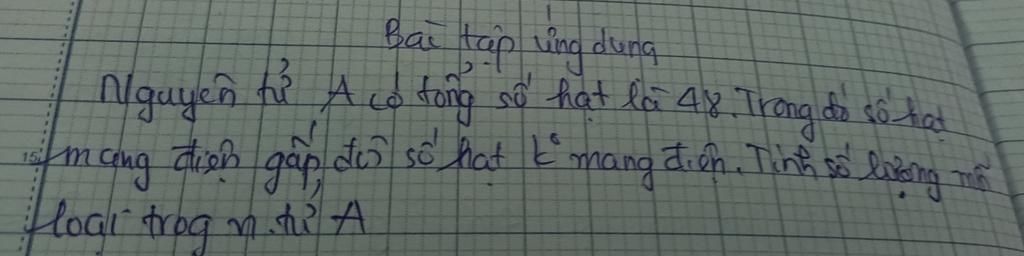 Bài tập ứng dụng
Nguyên tử A có tổng số hạt là 48. Trong đó số hạt
mang điện gấp đôi số hạt k° mang điện. Tính số lượng mỗi
loại trog n.tử A